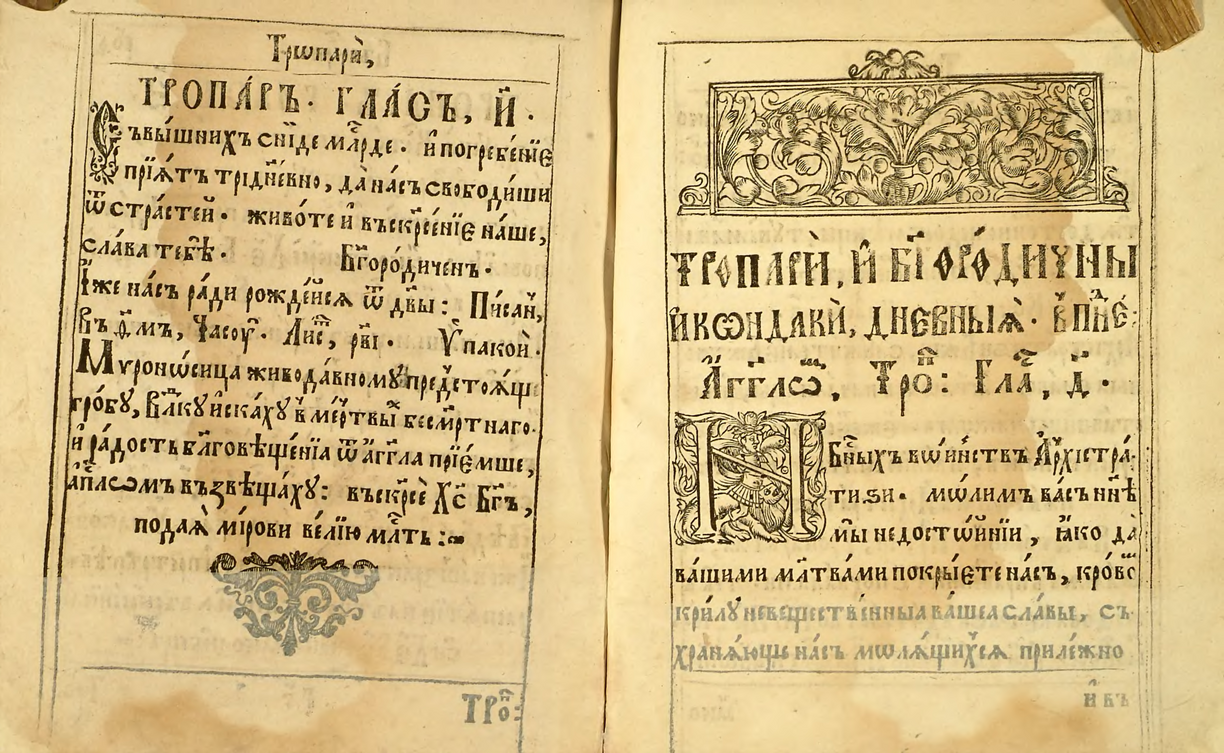 Трѡпарѝ,
ТРОПА́РЪ · ГЛА́СЪ, И҃ ·
Съвы́шнихъ сни́де млⷭ҇рде · и҆ погребе́нїе
прїѧ́тъ тридне́вно, да̀ на́съ свободи́ши
ѿ стра́стей · живо́те и҆ въскрⷭ҇е́нїе на́ше,
сла́ва тебѣ̀ · Бг҃оро́диченъ ·
И҆́же на́съ ра́ди рожде́йсѧ ѿ дв҃ы : Пи́сан,
въ ѱл҃мъ, Часоу · Лиⷭ҇, рв҃і · Ѵ҆пакои ·
Мѵроно́сица живода́вному предстоѧ́ще
гро́бу, влⷣку и҆ска́ху в ме́ртвыⷯ бесме́ртнаго ·
и҆ ра́дость бл҃говѣще́нїа ѿ а҆́гг҃ла прїе́мше,
а҆пⷭ҇лѡмъ възвѣща́ху : въскр҃се Хс҃ Бг҃ъ,
пода́ѧ ми́рови ве́лїю млⷭ҇ть :~
ТРОⷫ҇:
ТРОПАРЍ, И҆ БГ҃ОРО́ДИЧНЫ
И҆ КѠНДАКЍ, ДНЕВНЫѦ̀ · В ПНⷣЕ:
А҆́гг҃лѡⷨ, Троⷫ҇: Глаⷭ҇, д҃ ·
Нбⷭ҇ныхъ во́инствъ А҆рхїстра́-
ти.зи · мо́лимъ ва́съ нн҃ѣ
мы̀ недосто́йнїи, ꙗ҆́ко да̀
ва́шими мл҃твами покры́ете на́съ, кро́воⷨ
крилу̀ невеще́ственныа ва́шеа сла́вы, съ-
хранѧ́юще на́съ молѧ́щихсѧ приле́жно
и҆ въ